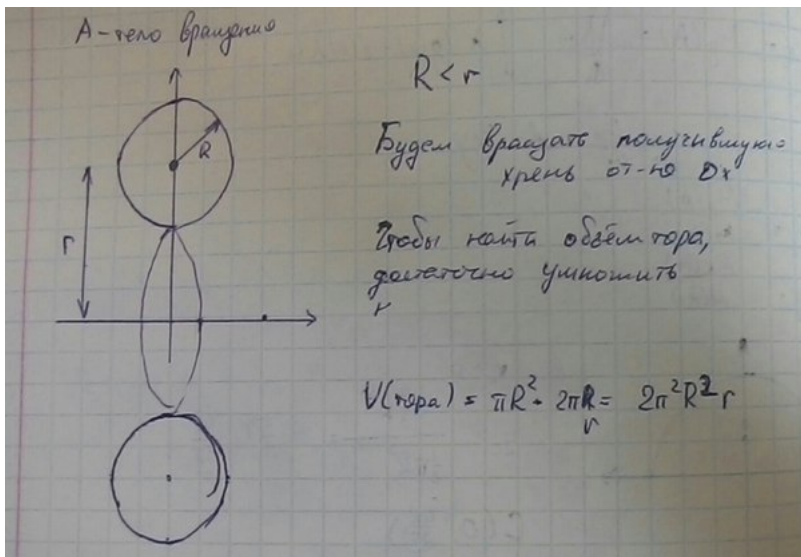 А-тело вращения
R < r
R
Будем вращать получившуюю
хрень от-но Ox
r
Чтобы найти объём тора,
достаточно умножить
V(тора) = πR² · 2πr = 2π²R² r